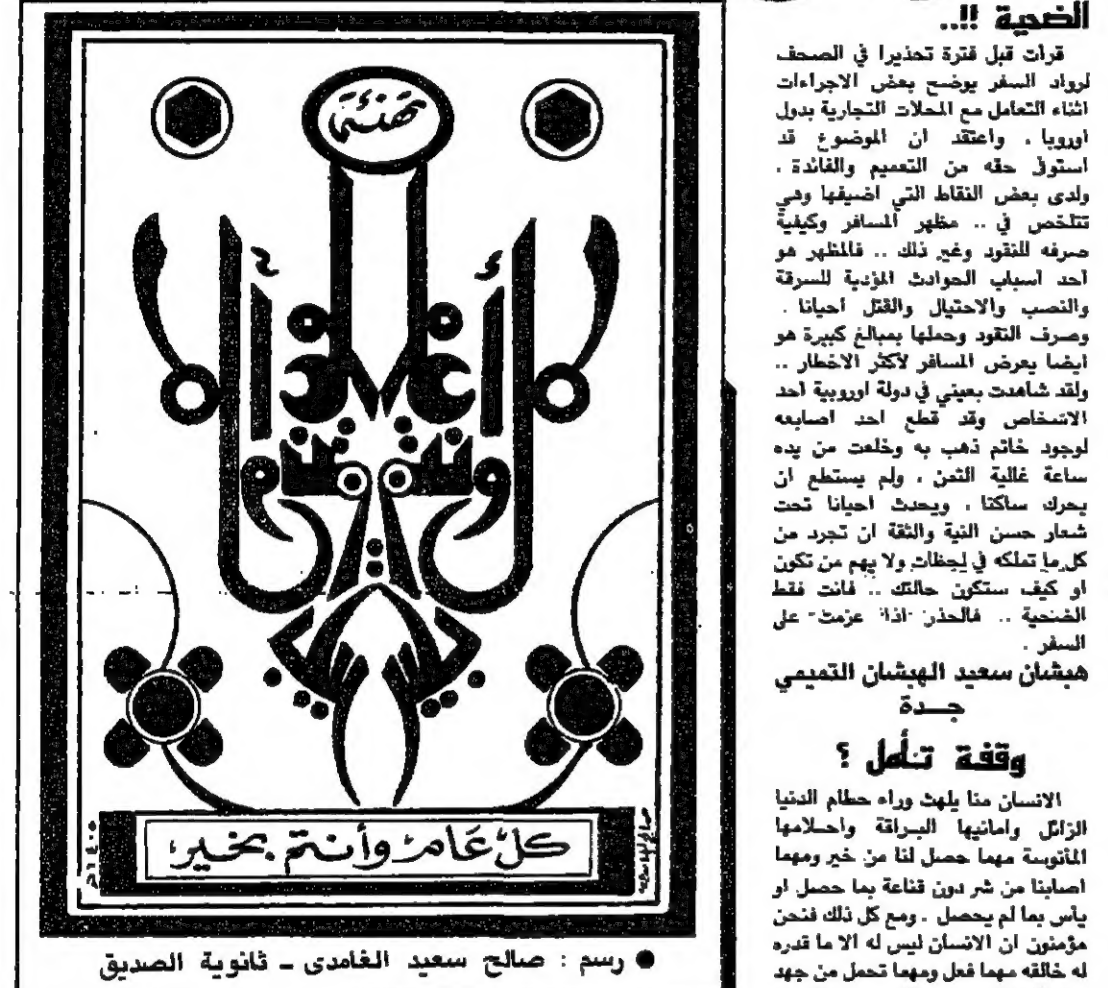 الضحية !!..
قرأت قبل فترة تحذيرا في الصحف
لرواد السفر يوضح بعض الاجراءات
اثناء التعامل مع المحلات التجارية بدول
اوروبا . واعتقد ان الموضوع قد
استوفى حقه من التعميم والفائدة .
ولدى بعض النقاط التي اضيفها وهي
تتلخص في .. مظهر المسافر وكيفية
صرفه للنقود وغير ذلك .. فالمظهر هو
احد اسباب الحوادث المؤدية للسرقة
والنصب والاحتيال والقتل احيانا .
وصرف النقود وحملها بمبالغ كبيرة هو
ايضا يعرض المسافر لأكثر الاخطار ..
ولقد شاهدت بعيني في دولة اوروبية احد
الاشخاص وقد قطع احد اصابعه
لوجود خاتم ذهب به وخلعت من يده
ساعة غالية الثمن ، ولم يستطع ان
يحرك ساكنا . ويحدث احيانا تحت
شعار حسن النية والثقة ان تجرد من
كل ما تملكه في لحظات ولا يهم من تكون
او كيف ستكون حالتك .. فانت فقط
الضحية .. فالحذر اذا عزمت على
السفر .
هبشان سعيد الهبشان التميمي
جــدة
وقفة تأمل ؟
الانسان منا يلهث وراء حطام الدنيا
الزائل وامانيها البراقة واحلامها
المأنوسة مهما حصل لنا من خير ومهما
اصابنا من شر دون قناعة بما حصل او
يأس بما لم يحصل . ومع كل ذلك فنحن
مؤمنون ان الانسان ليس له الا ما قدره
له خالقه مهما فعل ومهما تحمل من جهد
تهنئة
كل عام وأنتم بخير
١٤٠٥
● رسم : صالح سعيد الغامدى ـ ثانوية الصديق